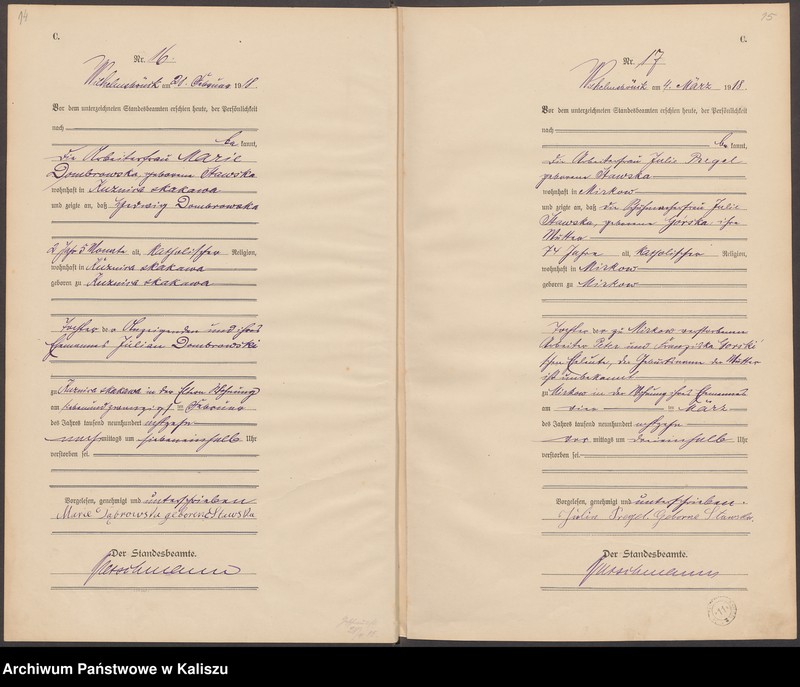 14
C.
Nr. 16.
Wilhelmsbrück am 21. Februar 1918.
Vor dem unterzeichneten Standesbeamten erschien heute, der Persönlichkeit
nach
bekannt,
die Arbeiterfrau Marie
Dombrowska, geborene Stawska
wohnhaft in Kuznica skakawa
und zeigte an, daß Hedwig Dombrowska
2 Jahr 5 Monate alt, katholischer Religion,
wohnhaft in Kuznica skakawa
geboren zu Kuznica skakawa
Tochter der Anzeigenden und ihres
Ehemannes Julian Dombrowski
zu Kuznica skakawa in der Eltern Wohnung
am Februar
des Jahres tausend neunhundert achtzehn
nachmittags um siebeneinhalb Uhr
verstorben sei.
Vorgelesen, genehmigt und unterschrieben
Marie Dąbrowska geborene Stawska
Der Standesbeamte.
15
C.
Nr. 17
Wilhelmsbrück am 4. März 1918.
Vor dem unterzeichneten Standesbeamten erschien heute, der Persönlichkeit
nach
bekannt,
die Arbeiterfrau Julie Pregel
geborene Stawska
wohnhaft in Mirkow
und zeigte an, daß die Julie
Stawska, geborene Gorska, ihre
Mutter
74 Jahre alt, katholischer Religion,
wohnhaft in Mirkow
geboren zu Mirkow
Tochter der zu Mirkow verstorbenen
Arbeiter Peter und Franziska Gorski
schen Eheleute, der Geburtsname der Mutter
ist unbekannt
zu Mirkow in der Wohnung ihres Ehemannes
am vier März
des Jahres tausend neunhundert achtzehn
vor mittags um dreieinhalb Uhr
verstorben sei.
Vorgelesen, genehmigt und unterschrieben.
Julie Pregel Geborne Stawska.
Der Standesbeamte.
Archiwum Państwowe w Kaliszu